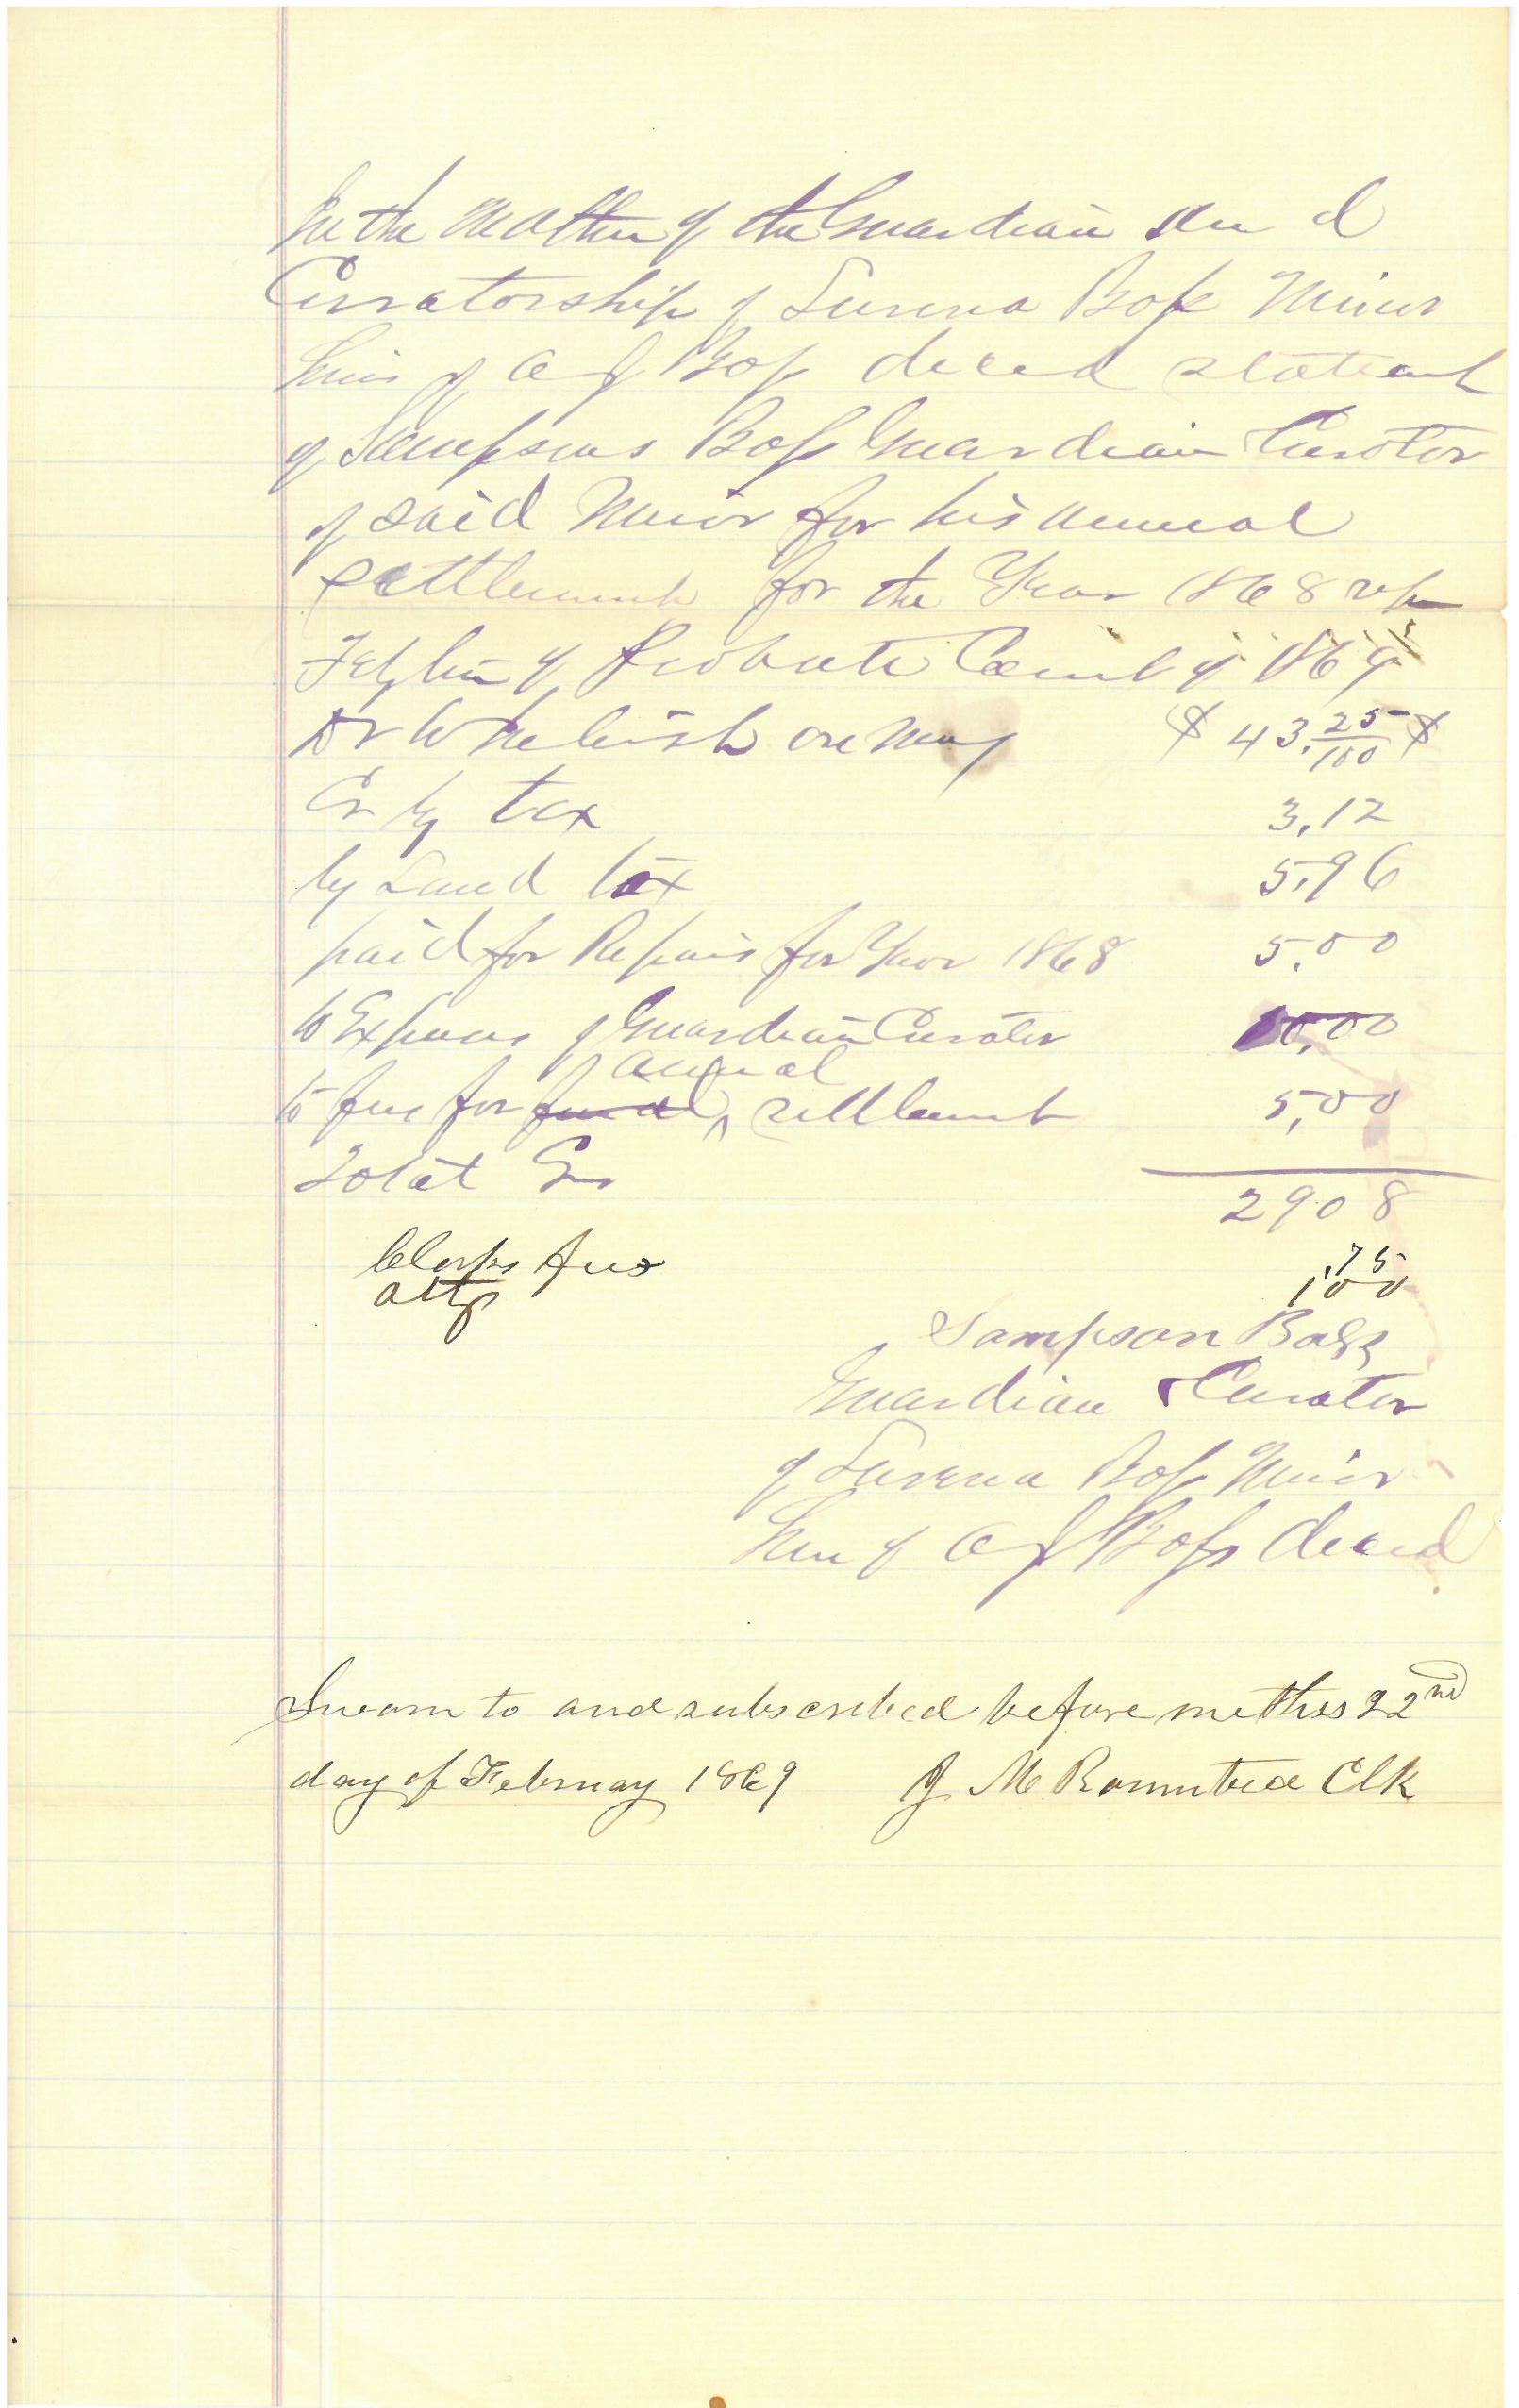 In the matter of the Guardian and
Curatorship of Surena Bass Minor
heir of A J Bass deced statement
of Sampson Bass Guardian Curator
of said Minor for his annual
settlement for the Year 1868
Feb Term of Probate Court of 1869
Dr $ 43.25/100 $
Cr by tax 3,12
by Land tax 5,96
paid for Repairs for Year 1868 5,00
to Expenses of Guardian Curator 10,00
annual
to fees for final settlement 5,00
Total Cr 2908
Clerks fees ,75
atty 100
Sampson Bass
Guardian & Curator
of Surena Bass Minor
heir of A J Bass deced
Sworn to and subscribed before me this 22nd
day of February 1869 J M Rountree Clk